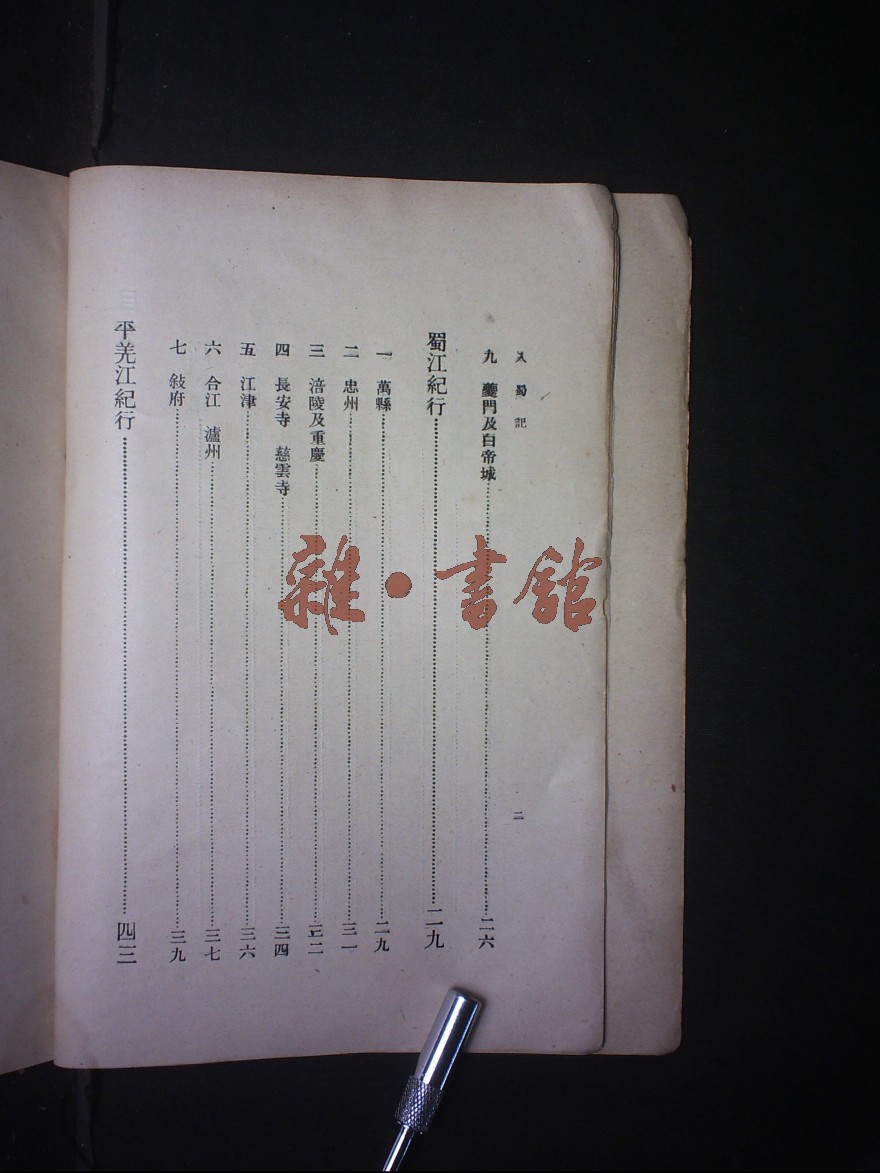 入蜀記
二
九　夔門及白帝城……二六
蜀江紀行……二九
一　萬縣……二九
二　忠州……三一
三　涪陵及重慶……三二
四　長安寺　慈雲寺……三四
五　江津……三六
六　合江　瀘州……三七
七　敍府……三九
平羌江紀行……四三
雜·書館